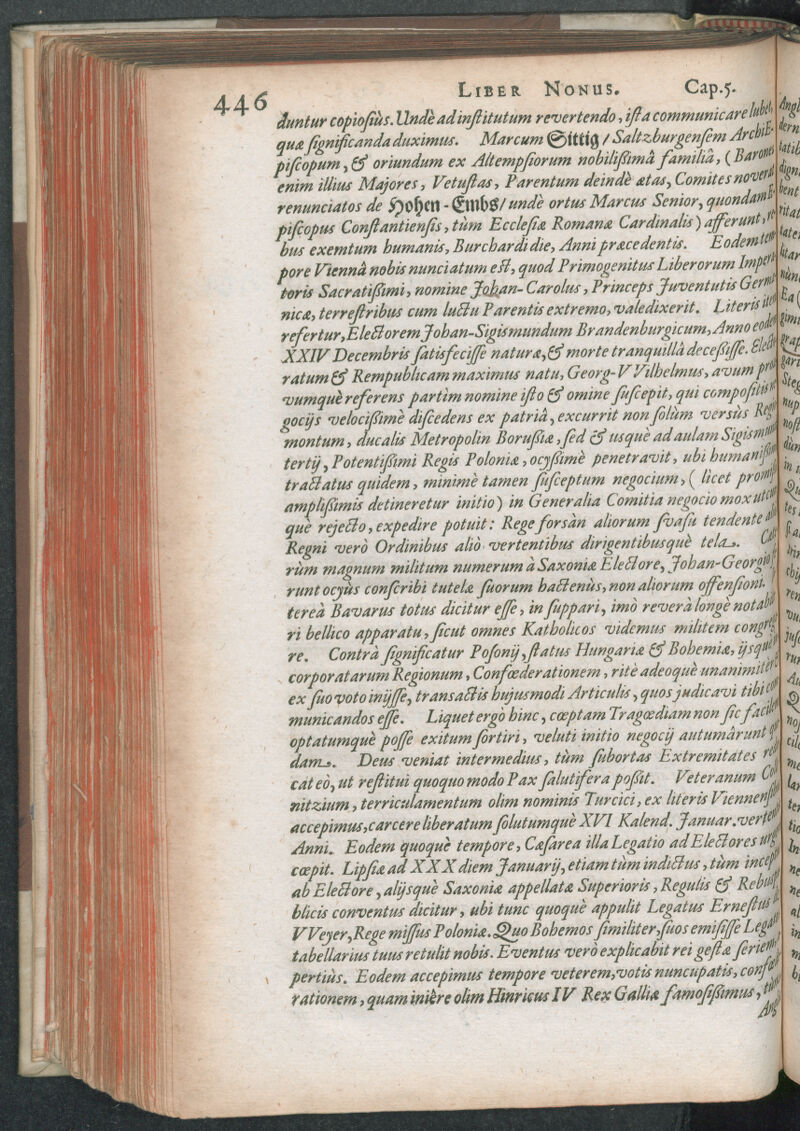 446 LIBER NONUS. Cap.5.
duntur copiosiùs. Undè ad institutum revertendo, ista communicare lubet,
quæ significanda duximus. Marcum Sittig / Saltzburgensem ArchiE-
piscopum, & oriundum ex Altempsiorum nobilißimâ familiâ, (Barones
enim illius Majores, Vetustas, Parentum deindè ætas, Comites noverat
renunciatos de Hohen-Embs/ undè ortus Marcus Senior, quondam E-
piscopus Constantiensis, tùm Ecclesiæ Romanæ Cardinalis) afferunt, re-
bus exemtum humanis, Burchardi die, Anni præcedentis. Eodem tem-
pore Viennâ nobis nunciatum est, quod Primogenitus Liberorum Impera-
toris Sacratißimi, nomine Johan-Carolus, Princeps Juventutis Germa-
nicæ, terrestribus cum luctu Parentis extremo, valedixerit. Literis item
refertur, Electorem Johan-Sigismundum Brandenburgicum, Anno eodem
XXIV Decembris satisfecisse naturæ, & morte tranquillâ decessisse. Elect-
ratum & Rempublicam maximus natu, Georg-VVilhelmus, avum pro-
vumquè referens partìm nomine isto & omine suscepit, qui compositis ne-
gocijs velocißimè discedens ex patriâ, excurrit non solùm versùs Regio-
montum, ducalis Metropolin Borußiæ, sed & usquè ad aulam Sigismundi
tertij, Potentißimi Regis Poloniæ, ocyßimè penetravit, ubi humanißimè
tractatus quidem, minimè tamen susceptum negocium, (licet promißis
amplißimis detineretur initio) in Generalia Comitia negocio mox utcun-
què rejecto, expedire potuit: Rege forsàn aliorum svasu tendente aliò,
Regni verò Ordinibus aliò vertentibus dirigentibusquè tela.
rùm magnum militum numerum à Saxoniæ Electore, Johan-Georgio
runt ocyùs conscribi tutelæ suorum hactenùs, non aliorum offensioni.
tereà Bavarus totus dicitur esse, in suppari, imò reverà longè notabi-
ri bellico apparatu, sicut omnes Katholicos videmus militem congrega-
re. Contrà significatur Posonij, status Hungariæ & Bohemiæ, ijsquè
corporatarum Regionum, Confœderationem, ritè adeoquè unanimiter
ex suo voto inijsse, transactis hujusmodi Articulis, quos judicavi tibi com-
municandos esse. Liquet ergò hinc, cœptam Tragœdiam non sic facilem
optatumquè posse exitum sortiri, veluti initio negocij autumârunt qui-
dam. Deus veniat intermedius, tùm subortas Extremitates re-
cat eò, ut restitui quoquo modo Pax salutifera poßit. Veteranum Co-
nitzium, terriculamentum olim nominis Turcici, ex literis Viennensibus
accepimus, carcere liberatum solutumquè XVI Kalend. Januar. vertentis
Anni. Eodem quoquè tempore, Cæsarea illa Legatio ad Electores urgeri
cœpit. Lipsiæ ad XXX diem Januarij, etiam tùm indictus, tùm inceptus
ab Electore, alijsquè Saxoniæ appellatæ Superioris, Regulis & Rebuspu-
blicis conventus dicitur, ubi tunc quoquè appulit Legatus Ernestus à
VVeyer, Rege missus Poloniæ. Quo Bohemos similiter, suos emisisse Legatos
tabellarius tuus retulit nobis. Eventus verò explicabit rei gestæ seriem
pertiùs. Eodem accepimus tempore veterem, votis nuncupatis, confœde-
rationem, quam inière olim Hinricus IV Rex Galliæ famosißimus, tùm